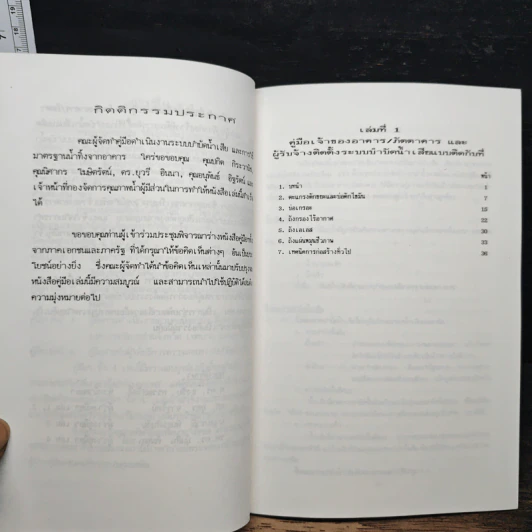 กิตติกรรมประกาศ
คณะผู้จัดทำคู่มือดำเนินงานระบบบำบัดน้ำเสีย และการ
มาตรฐานน้ำทิ้งจากอาคาร ใคร่ขอขอบคุณ คุณบพิต
คุณนิศากร โฆษิตรัตน์, ดร.ยุวรี อินนา, คุณอนุพันธ์ อิฐรัตน์ และ
เจ้าหน้าที่กองจัดการคุณภาพน้ำผู้มีส่วนในการทำให้หนังสือเล่มนี้
ได้
ขอขอบคุณท่านผู้เข้าร่วมประชุมพิจารณาร่างหนังสือคู่มือ
จากภาคเอกชนและภาครัฐ ที่ได้กรุณาให้ข้อคิดเห็นต่างๆ อันเป็น
โยชน์อย่างยิ่ง ซึ่งคณะผู้จัดทำได้นำข้อคิดเห็นเหล่านั้นมาปรับปรุง
หนังสือคู่มือเล่มนี้มีความสมบูรณ์ และสามารถนำไปใช้ปฏิบัติได้
ความมุ่งหมายต่อไป
เล่มที่ 1
คู่มือเจ้าของอาคาร/ภัตตาคาร และ
ผู้รับจ้างติดตั้งระบบบำบัดน้ำเสียแบบติดกับที่
หน้า
1. บทนำ 1
2. ตะแกรงดักขยะและบ่อดักไขมัน 7
3. บ่อเกรอะ 15
4. ถังกรองไร้อากาศ 22
5. ถังเอเอส 30
6. ถังแผ่นหมุนชีวภาพ 33
7. เทคนิคการก่อสร้างทั่วไป 36